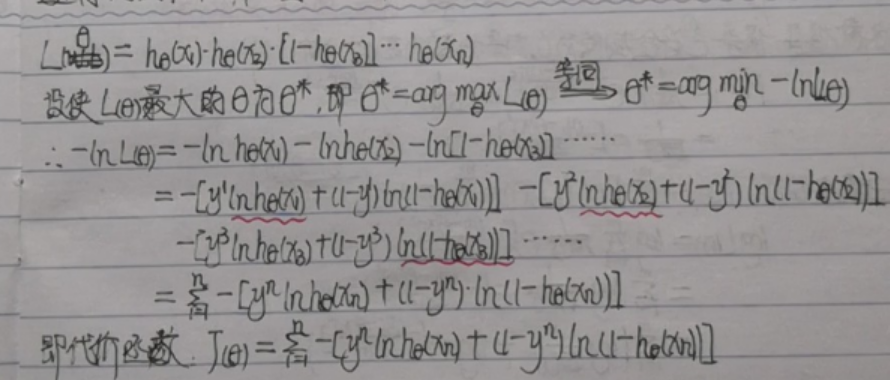 L(θ) = hθ(x₁)·hθ(x₂)·[1-hθ(x₃)]⋯hθ(xn)
设使L(θ)最大的θ为θ*,即 θ*=arg max_θ L(θ) 等同⟹ θ*=arg min_θ -lnL(θ)
∴ -lnL(θ)=-ln hθ(x₁) - lnhθ(x₂) - ln[1-hθ(x₃)] ⋯⋯
= -[y¹lnhθ(x₁)+(1-y¹)ln(1-hθ(x₁))] -[y²lnhθ(x₂)+(1-y²)ln(1-hθ(x₂))]
-[y³lnhθ(x₃)+(1-y³)ln(1-hθ(x₃))] ⋯⋯
= Σⁿᵢ₌₁ -[yⁿlnhθ(xn)+(1-yⁿ)·ln(1-hθ(xn))]
即代价函数 J(θ)= Σⁿᵢ₌₁ -[yⁿlnhθ(xn)+(1-yⁿ)ln(1-hθ(xn))]